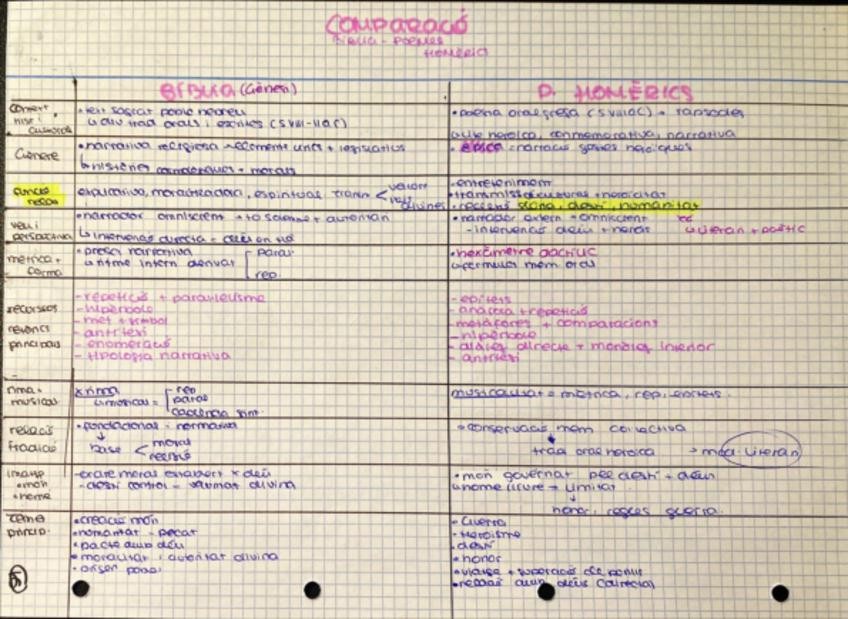 COMPARACIÓ
BÍBLIA - POEMES
HOMÈRICS
BÍBLIA (Gènesi)
P. HOMÈRICS
context
hist i
cultural
• text sagrat poble hebreu
div trad orals i escrites (S VIII-II AC)
• poesia oral grega (S VIII AC) → rapsodes
heroica, commemorativa, narrativa
Gènere
• narrativa religiosa
històries + morals
• èpica narració gestes heroiques
funció
explicativa, moralitzadora, espiritual <valors
divines
- entreteniment
glòria, destí, humanitat
veu i
perspectiva
• narrador omniscient →to solemne + autoritari
↳ intervenció directa = déu en
• narrador extern + omniscient
- intervenció déus + herois
literari + poètic
mètrica +
forma
• prosa narrativa
ritme intern derivat [paral
rep.
• hexàmetre dactílic
fórmules mem oral
recursos
retòrics
principals
- repetició + paral·lelisme
- hipèrbole
- met + símbol
- antítesi
- enumeració
- tipologia narrativa
- epítets
- anàfora + repetició
- metàfores + comparacions
- hipèrbole
- diàleg directe + monòleg interior
- antítesi
rima +
musical
x rima
musical = [rep
paral
cadència sint.
musicalitat = mètrica, rep, epítets.
relació
tradició
• fundacional i normativa
↓
base <moral
religió
• conservació mem col·lectiva
↓
trad oral heroica → model literari
imatge
+ món
+ home
- ordre moral establert x déu
- destí control - voluntat divina
• món governat pel destí + déus
home lliure → limitat
↓
honor, regles guerra.
tema
princip.
• creació món
• humanitat - pecat
• pacte amb déu
• moralitat i autoritat divina
• origen poble
• Guerra
• Heroisme
• destí
• honor
• viatge + superació de perills
• relació amb déus